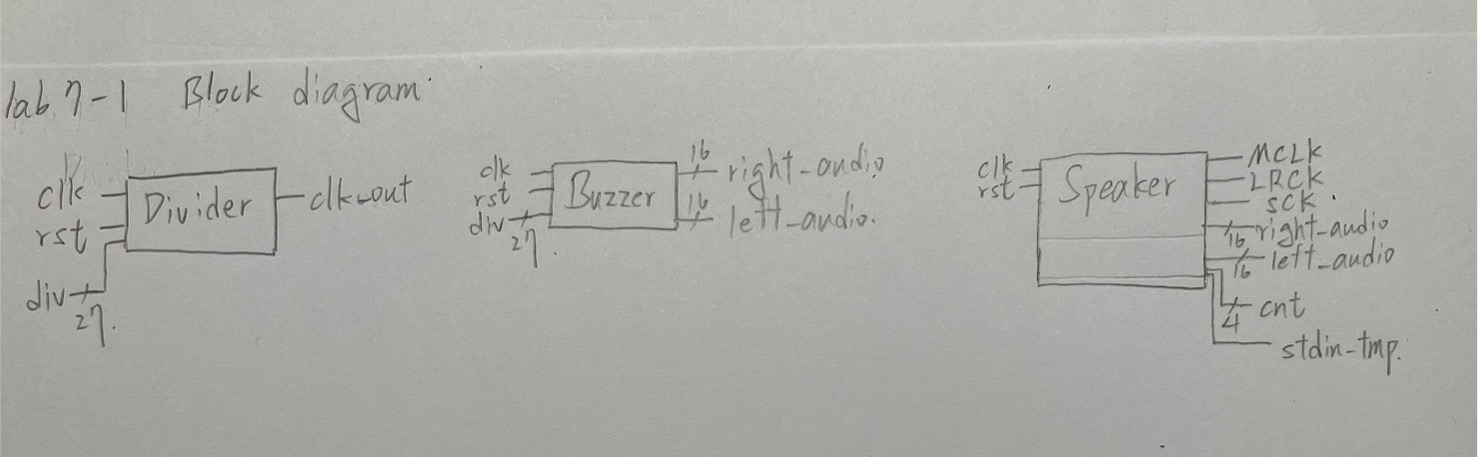 lab 7-1 Block diagram.
clk
rst
div
27.
Divider
clk_out
clk
rst
div
27.
Buzzer
16
right_audio
16
left_audio.
clk
rst
Speaker
MCLK
LRCK
SCK.
16
right_audio
16
left_audio
4
cnt
stdin_tmp.